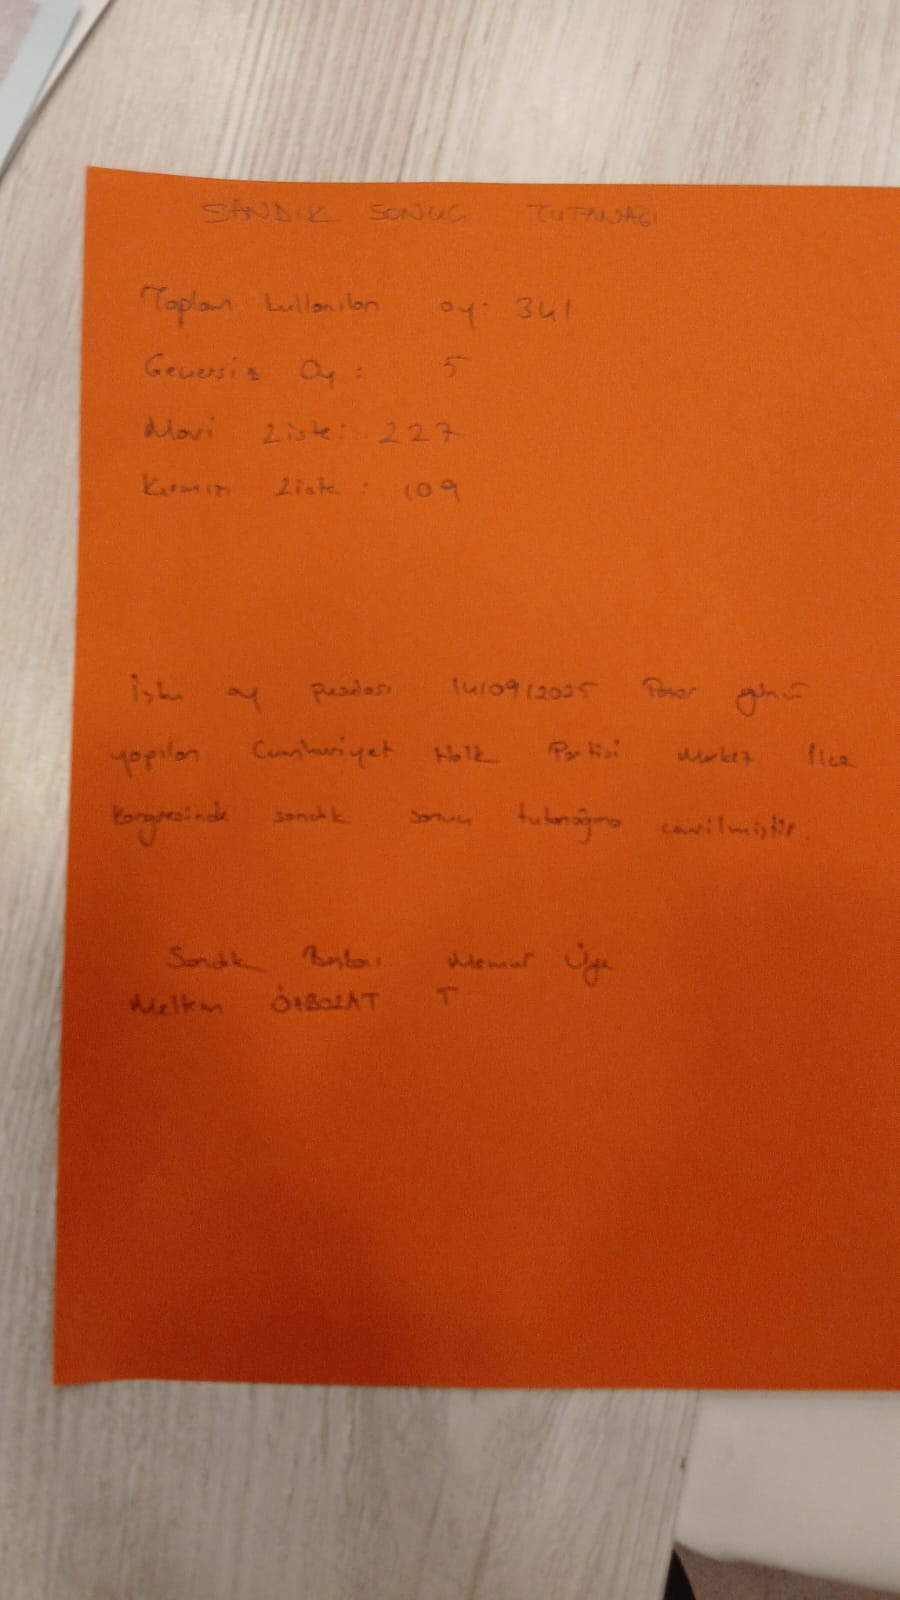 SANDIK SONUÇ TUTANAĞI
Toplam kullanılan oy: 341
Geçersiz Oy: 5
Mavi Liste: 227
Kırmızı Liste: 109
İşbu oy pusulası 14/09/2025 Pazar günü
yapılan Cumhuriyet Halk Partisi Merkez İlçe
Kongresinde sandık sonuç tutanağına çevrilmiştir.
Sandık Başkanı Memur Üye
Meltem T